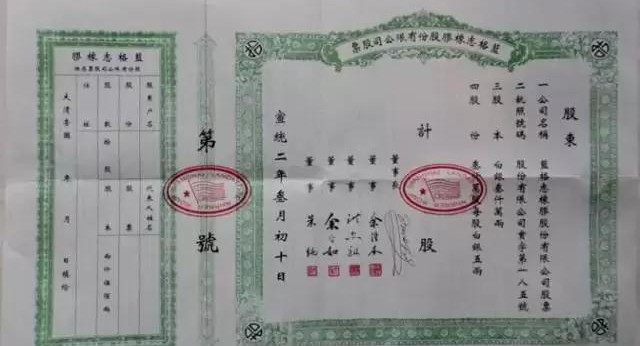 藍格志橡膠股份有限公司股票
股東
一公司名稱 藍格志橡膠股份有限公司股票
二執照號碼 股份有限公司 字第一八五號
三股本 白銀叁仟萬兩
四股份 每股白銀五兩
計 股
董事長
董事
董事
董事
董事
宣統二年叁月初十日
第 號
藍格志橡膠
股份有限公司股票存根
股東户名 代表人姓名
股份 股票
股數 拾股 股本
住址
大清帝國 年 月 日填給